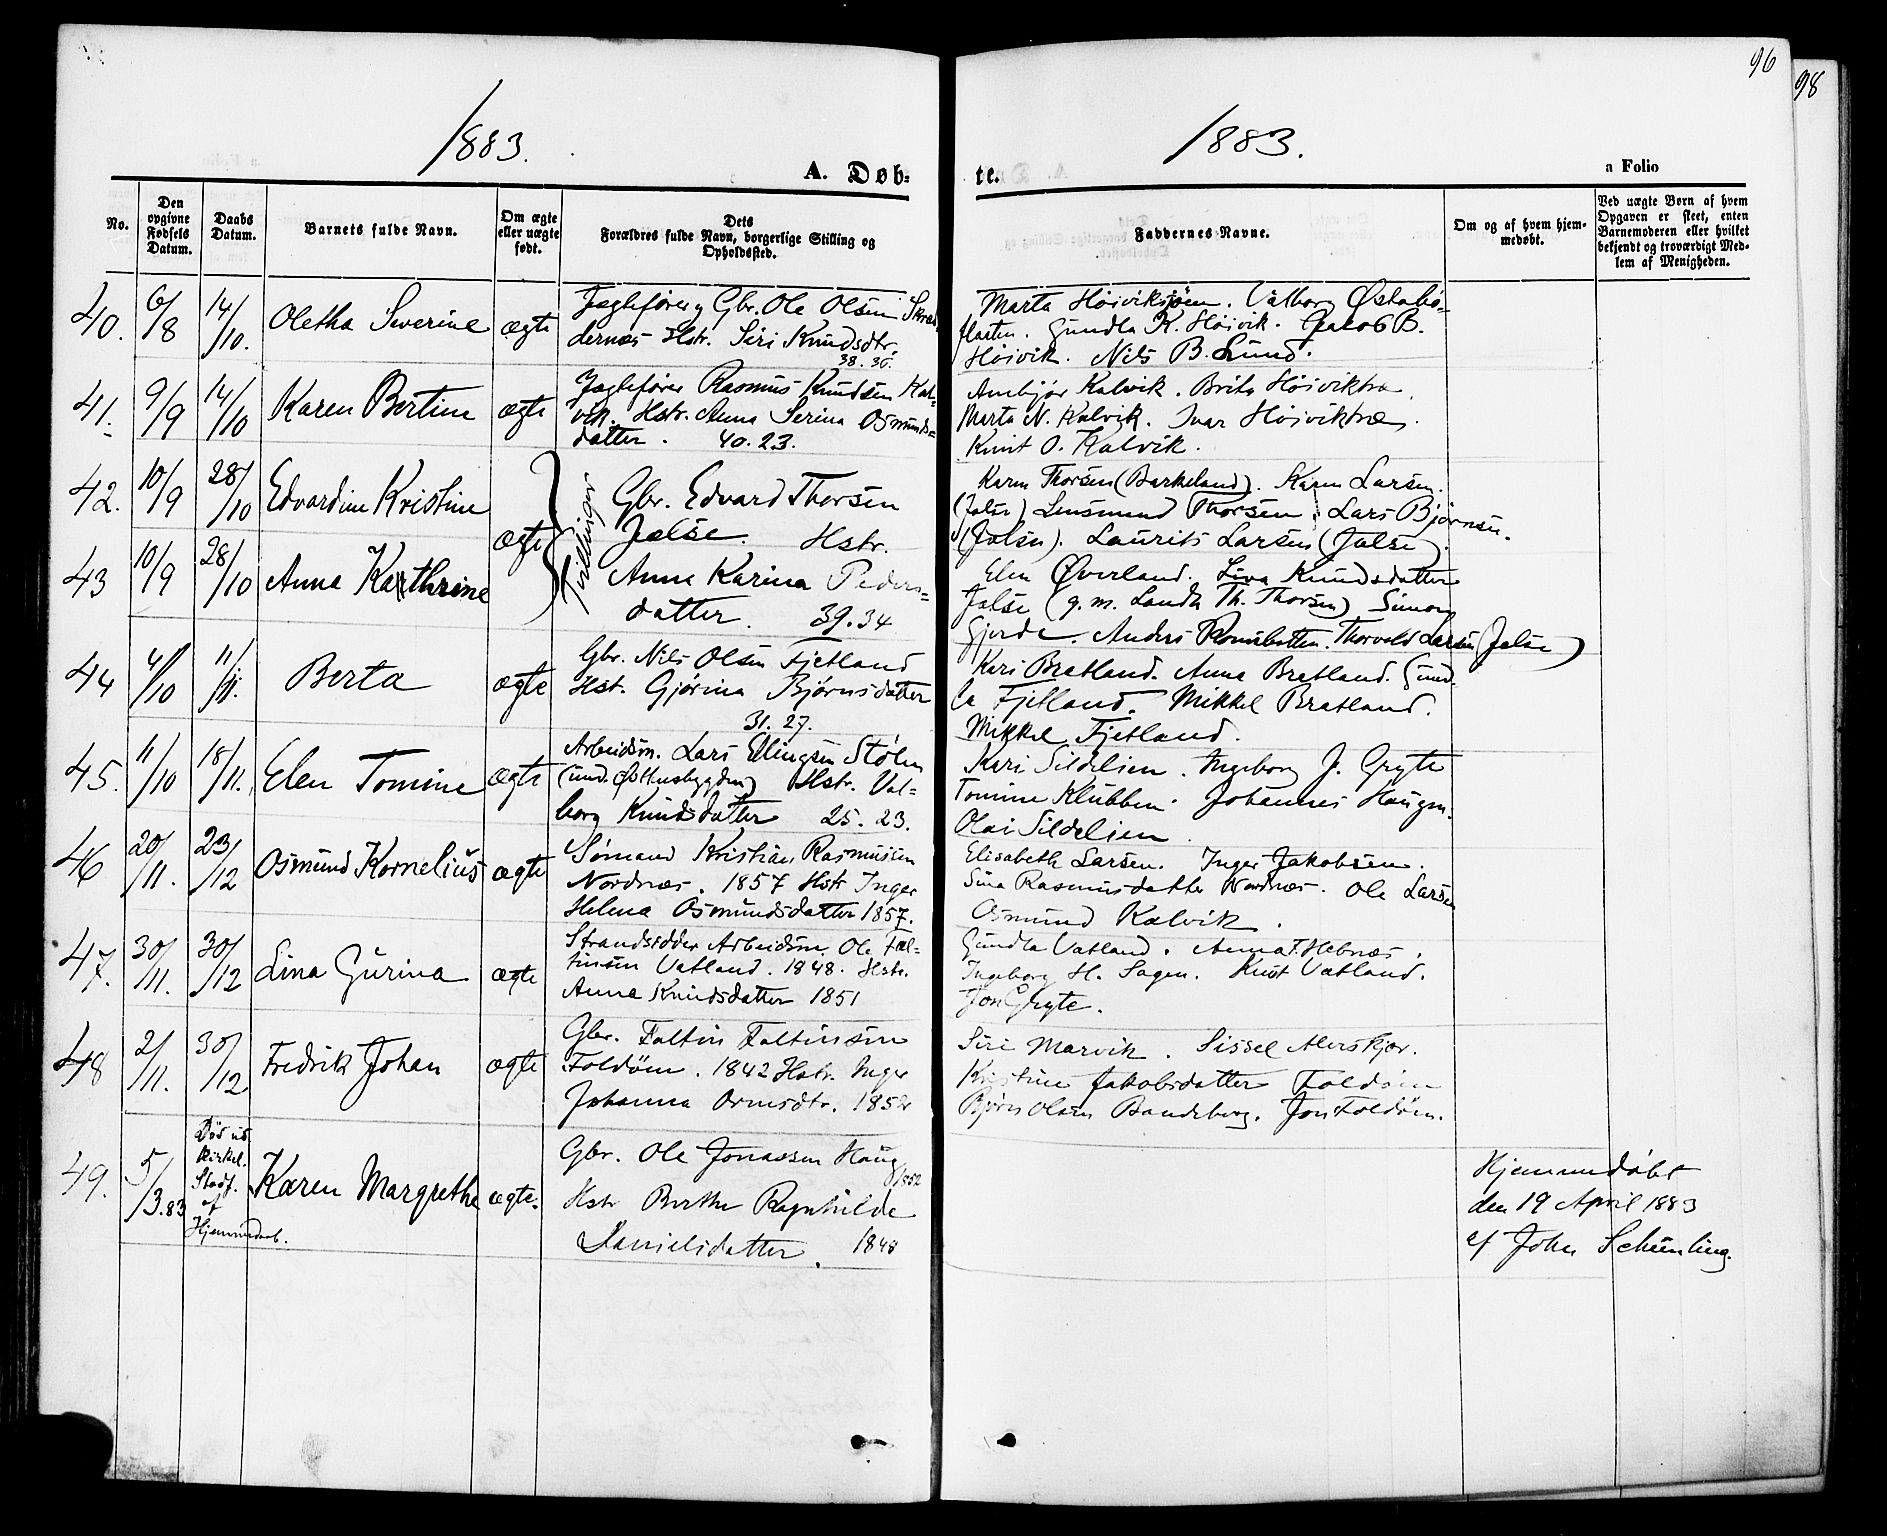 96
98
1883.
1883.
A. Døb-
te.
a Folio
No.
Den opgivne Fødsels Datum.
Daabs Datum.
Barnets fulde Navn.
Om ægte eller uægte født.
Dets Forældres fulde Navn, borgerlige Stilling og Opholdssted.
Faddernes Navne.
Om og af hvem hjemmedøbt.
Ved uægte Børn af hvem Opgaven er skeet, enten Barnemoderen eller hvilket bekjendt og troværdigt Medlem af Menigheden.
40. 6/8 14/10. Oletha Severine ægte
Jagtefører og Gbr. Ole Olsen Skræd-
dernæs Hstr. Siri Knudsdtr.
38. 36.
Marta Høivik. Valborg Østabø-
Gundla K. Høivik. Jakob B.
Høivik. Nils B. Lund.
41. 9/9 14/10 Karen Bertine ægte
Jagtefører Rasmus Knudsen Kal-
vik. Hstr. Anna Serina Osmunds-
datter. 40. 23.
Anbjør Kalvik. Brita Høiviktræ.
Marta N. Kalvik. Ivar Høiviktræ.
Knut O. Kalvik.
42. 10/9 28/10 Edvardine Kristine
ægte
Tvillinger
43 10/9 28/10 Anna Kathrine
Gbr. Edvard Thorsen
Jælse. Hstr.
Anna Karina Peders-
datter. 39. 34
Karen Thorsen (Barkeland). Karen Larsen.
(Jalse) Thorsen. Lars Bjørnsen.
(Jalse). Laurits Larsen (Jalse).
Elen Øverland. Siva Knudsdatter
Jalse (g. m. Th. Thorsen) Simon
Gjerde. Anders Thorvald Larsen (Jalse)
44 4/10 11/11. Berta ægte
Gbr. Nils Olsen Fjetland
Hst. Gjørina Bjørnsdatter
31. 27.
Kari Bratland. Anna Bratland. Gund-
la Fjetland. Mikkel Bratland.
Mikkel Fjetland.
45. 11/10 18/11. Elen Tomine ægte
Arbeidsm. Lars Ellingsen Stølen
(und. Østhusbygden) Hstr. Val-
borg Knudsdatter 25. 23.
Kari Sildelien. Ingeborg J. Gryte
Tomine Klubben. Johannes Haugen.
Olai Sildelien.
46 20/11. 23/12 Osmund Kornelius ægte
Sømand Kristian Rasmussen
Nordnæs. 1857 Hstr Inger
Helena Osmundsdatter 1857.
Elisabeth Larsen. Inger Jakobsen.
Sina Rasmusdatter Nordnæs. Ole Larsen
Osmund Kalvik.
47. 30/11. 30/12 Lina Gurina ægte
Strandsidder Arbeidsm. Ole Fal-
tinsen Vatland. 1848. Hstr.
Anna Knudsdatter 1851
Gundla Vatland. Anna T. Hebnæs.
Ingeborg H. Sagen. Knut Vatland.
Jon Gryte.
48 2/11. 30/12 Fredrik Johan ægte
Gbr. Faltin Faltinsen
Foldøen. 1842 Hstr. Inger
Johanna Ormsdtr. 1852
Siri Marvik. Sissel Alvskjær.
Kristine Jakobsdatter Foldøen
Bjørn Olsen Bandeberg. Jon Foldøen.
49. 5/3.83
Død ud.
Kirkel.
Stadf.
af
Hjemmedaab.
Karen Margrethe ægte.
Gbr. Ole Jonassen Haug
1852
Hstr Berthe Ragnhilde
Danielsdatter. 1848
Hjemmedøbt
den 19 April 1883
af John Scheimling.